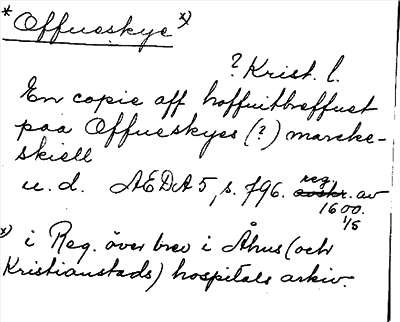 *Offueskye x)
? Krist. l.
En copie aff hoffuitbreffuet
paa Offueskyes (?) marcke-
skiell
u.d. AEDA 5, s. 796. reg. av
1600.
1/5
x) i Reg. över brev i Åhus (och
Kristianstads) hospitals arkiv.